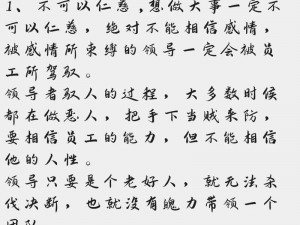 1、不可以仁慈,想做大事一定不
可以仁慈，绝对不能相信感情，
被感情所束缚的领导一定会被员
工所驾驭。
领导者驭人的过程，大多数时候
都在做恶人，把手下当贼来防，
要相信员工的能力，但不能相信
他的人性。
领导只要是个老好人，就无法杀
伐决断，也就没有魄力带领一个
团队